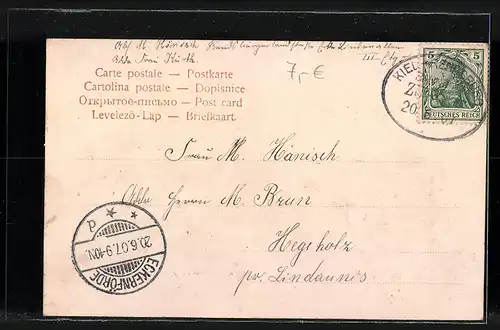 Abs. M. Hänisch
Carte postale — Postkarte
Cartolina postale — Dopisnice
Открытое-письмо — Post card
Levelezö-Lap — Briefkaart.
7,- €
KIEL
5 5
DEUTSCHES REICH
Frau M. Hänisch
Herrn M. Brun
Hegeholz
pr. Lindaunis
P
20.6.07.9-10N.
ECKERNFÖRDE